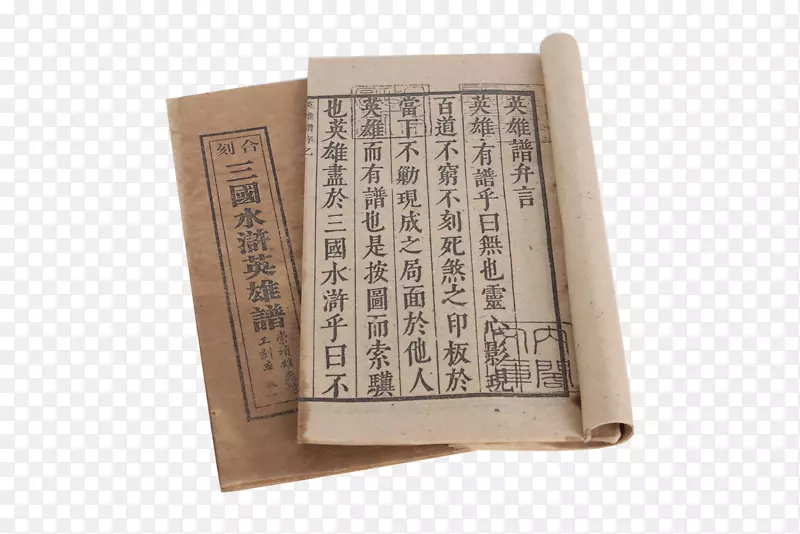 合刻
三國水滸英雄譜
英雄譜弁言
英雄有譜乎曰無也靈心影現
百道不窮不刻死煞之印板於
當下不勦現成之局面於他人
英雄而有譜也是按圖而索驥
也英雄盡於三國水滸乎曰不
英雄譜序之
內閣文庫